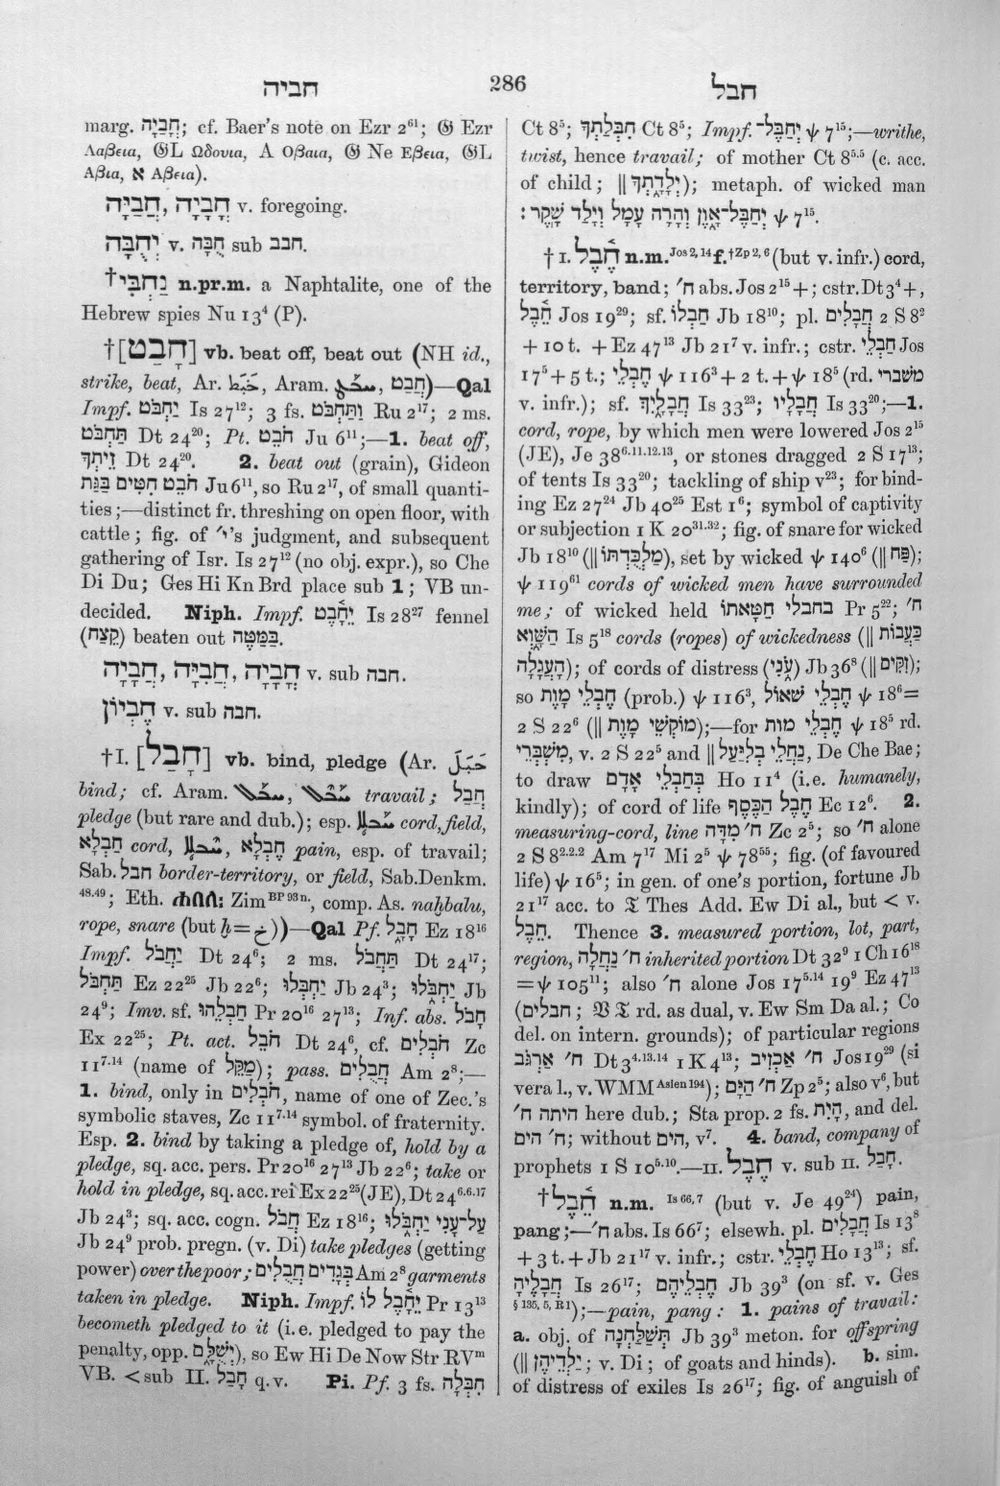 חביה
286
חבל
marg. חֲבָיָה; cf. Baer's note on Ezr 2⁶¹; 𝔊 Ezr
Λαβεια, 𝔊L Ωδουια, A Οβαια, 𝔊 Ne Εβεια, 𝔊L
Αβια, א Αβεια).
חֲבַיָּה, חֲבָיָה v. foregoing.
יְחֻבָּה v. חֻבָּה sub חבב.
†נַחְבִּי n.pr.m. a Naphtalite, one of the
Hebrew spies Nu 13⁴ (P).
†[חָבַט] vb. beat off, beat out (NH id.,
strike, beat, Ar. خَبَطَ, Aram. חֲבַט)—Qal
Impf. יַחְבֹּט Is 27¹²; 3 fs. וַתַּחְבֹּט Ru 2¹⁷; 2 ms.
תַּחְבֹּט Dt 24²⁰; Pt. חֹבֵט Ju 6¹¹;—1. beat off,
זֵיתְךָ Dt 24²⁰. 2. beat out (grain), Gideon
חֹבֵט חִטִּים בַּגַּת Ju 6¹¹, so Ru 2¹⁷, of small quanti-
ties;—distinct fr. threshing on open floor, with
cattle; fig. of י״'s judgment, and subsequent
gathering of Isr. Is 27¹² (no obj. expr.), so Che
Di Du; Ges Hi Kn Brd place sub 1; VB un-
decided. Niph. Impf. יֵחָבֶט Is 28²⁷ fennel
(קֶצַח) beaten out בַּמַּטֶּה.
חֲבָיָה, חֲבִיָּה, חֳבָיָה v. sub חבה.
חֶבְיוֹן v. sub חבה.
†I. [חָבַל] vb. bind, pledge (Ar. حَبَلَ
bind; cf. Aram. travail; חֲבַל
pledge (but rare and dub.); esp. cord, field,
חַבְלָא cord, חֶבְלָא pain, esp. of travail;
Sab. חבל border-territory, or field, Sab.Denkm.
48.49; Eth. ሐበለ: Zim BP 93 n., comp. As. naḫbalu,
rope, snare (but ḫ=خ))—Qal Pf. חָבָל Ez 18¹⁶
Impf. יַחֲבֹל Dt 24⁶; 2 ms. תַּחֲבֹל Dt 24¹⁷;
תַּחְבֹּל Ez 22²⁵ Jb 22⁶; יַחְבְּלוּ Jb 24³; יַחְבֹּלוּ Jb
24⁹; Imv. sf. חַבְלֵהוּ Pr 20¹⁶ 27¹³; Inf. abs. חָבֹל
Ex 22²⁵; Pt. act. חֹבֵל Dt 24⁶, cf. חֹבְלִים Zc
11⁷·¹⁴ (name of מַקֵּל); pass. חֲבֻלִים Am 2⁸;—
1. bind, only in חֹבְלִים, name of one of Zec.'s
symbolic staves, Zc 11⁷·¹⁴ symbol. of fraternity.
Esp. 2. bind by taking a pledge of, hold by a
pledge, sq. acc. pers. Pr 20¹⁶ 27¹³ Jb 22⁶; take or
hold in pledge, sq. acc. rei Ex 22²⁵ (JE), Dt 24⁶·⁶·¹⁷
Jb 24³; sq. acc. cogn. חֲבֹל Ez 18¹⁶; עַל־עָנִי יַחְבֹּלוּ
Jb 24⁹ prob. pregn. (v. Di) take pledges (getting
power) over the poor; בְּגָדִים חֲבֻלִים Am 2⁸ garments
taken in pledge. Niph. Impf. יֵחָבֶל לוֹ Pr 13¹³
becometh pledged to it (i.e. pledged to pay the
penalty, opp. יְשֻׁלָּם), so Ew Hi De Now Str RVᵐ
VB. < sub II. חָבַל q.v. Pi. Pf. 3 fs. חִבְּלָה
Ct 8⁵; חִבְּלַתְךָ Ct 8⁵; Impf. יְחַבֶּל־ ψ 7¹⁵;—writhe,
twist, hence travail; of mother Ct 8⁵·⁵ (c. acc.
of child; ‖ יְלָדָתְךָ); metaph. of wicked man
יְחַבֶּל־אָוֶן וְהָרָה עָמָל וְיָלַד שָׁקֶר׃ ψ 7¹⁵.
†I. חֶבֶל n.m. Jos 2, 14 f. †Zp 2, 6 (but v. infr.) cord,
territory, band; ח׳ abs. Jos 2¹⁵ +; cstr. Dt 3⁴ +,
חֵבֶל Jos 19²⁹; sf. חַבְלוֹ Jb 18¹⁰; pl. חֲבָלִים 2 S 8²
+ 10 t. + Ez 47¹³ Jb 21¹⁷ v. infr.; cstr. חַבְלֵי Jos
17⁵ + 5 t.; חֶבְלֵי ψ 116³ + 2 t. + ψ 18⁵ (rd. משברי
v. infr.); sf. חֲבָלָיִךְ Is 33²³; חֲבָלָיו Is 33²⁰;—1.
cord, rope, by which men were lowered Jos 2¹⁵
(JE), Je 38⁶·¹¹·¹²·¹³, or stones dragged 2 S 17¹³;
of tents Is 33²⁰; tackling of ship v²³; for bind-
ing Ez 27²⁴ Jb 40²⁵ Est 1⁶; symbol of captivity
or subjection 1 K 20³¹·³²; fig. of snare for wicked
Jb 18¹⁰ (‖ מַלְכֻּדְתּוֹ), set by wicked ψ 140⁶ (‖ פַּח);
ψ 119⁶¹ cords of wicked men have surrounded
me; of wicked held בחבלי חַטָּאתוֹ Pr 5²²; ח׳
הַשָּׁוְא Is 5¹⁸ cords (ropes) of wickedness (‖ כַּעֲבוֹת
הָעֲגָלָה); of cords of distress (עֹנִי) Jb 36⁸ (‖ זִקִּים);
so חֶבְלֵי מָוֶת (prob.) ψ 116³, חֶבְלֵי שְׁאוֹל ψ 18⁶=
2 S 22⁶ (‖ מוֹקְשֵׁי מָוֶת);—for חֶבְלֵי מות ψ 18⁵ rd.
מִשְׁבְּרֵי, v. 2 S 22⁵ and ‖ נַחֲלֵי בְלִיַּעַל, De Che Bae;
to draw בְּחַבְלֵי אָדָם Ho 11⁴ (i.e. humanely,
kindly); of cord of life חֶבֶל הַכֶּסֶף Ec 12⁶. 2.
measuring-cord, line ח׳ מִדָּה Zc 2⁵; so ח׳ alone
2 S 8²·²·² Am 7¹⁷ Mi 2⁵ ψ 78⁵⁵; fig. (of favoured
life) ψ 16⁵; in gen. of one's portion, fortune Jb
21¹⁷ acc. to 𝔗 Thes Add. Ew Di al., but < v.
חֵבֶל. Thence 3. measured portion, lot, part,
region, ח׳ נַחֲלָה inherited portion Dt 32⁹ 1 Ch 16¹⁸
= ψ 105¹¹; also ח׳ alone Jos 17⁵·¹⁴ 19⁹ Ez 47¹³
(חבלים; 𝔙 𝔗 rd. as dual, v. Ew Sm Da al.; Co
del. on intern. grounds); of particular regions
ח׳ אַרְגֹּב Dt 3⁴·¹³·¹⁴ 1 K 4¹³; ח׳ אַכְזִיב Jos 19²⁹ (si
vera l., v. WMM Asien 194); ח׳ הַיָּם Zp 2⁵; also v⁶, but
היתה ח׳ here dub.; Sta prop. 2 fs. הָיִת, and del.
ח׳ הים; without הים, v⁷. 4. band, company of
prophets 1 S 10⁵·¹⁰.—II. חֶבֶל v. sub II. חָבַל.
†חֵבֶל n.m. Is 66, 7 (but v. Je 49²⁴) pain,
pang;—ח׳ abs. Is 66⁷; elsewh. pl. חֲבָלִים Is 13⁸
+ 3 t. + Jb 21¹⁷ v. infr.; cstr. חֶבְלֵי Ho 13¹³; sf.
חֲבָלֶיהָ Is 26¹⁷; חֶבְלֵיהֶם Jb 39³ (on sf. v. Ges
§ 135, 5, R 1);—pain, pang: 1. pains of travail:
a. obj. of תְּשַׁלַּחְנָה Jb 39³ meton. for offspring
(‖ יַלְדֵיהֶן; v. Di; of goats and hinds). b. sim.
of distress of exiles Is 26¹⁷; fig. of anguish of